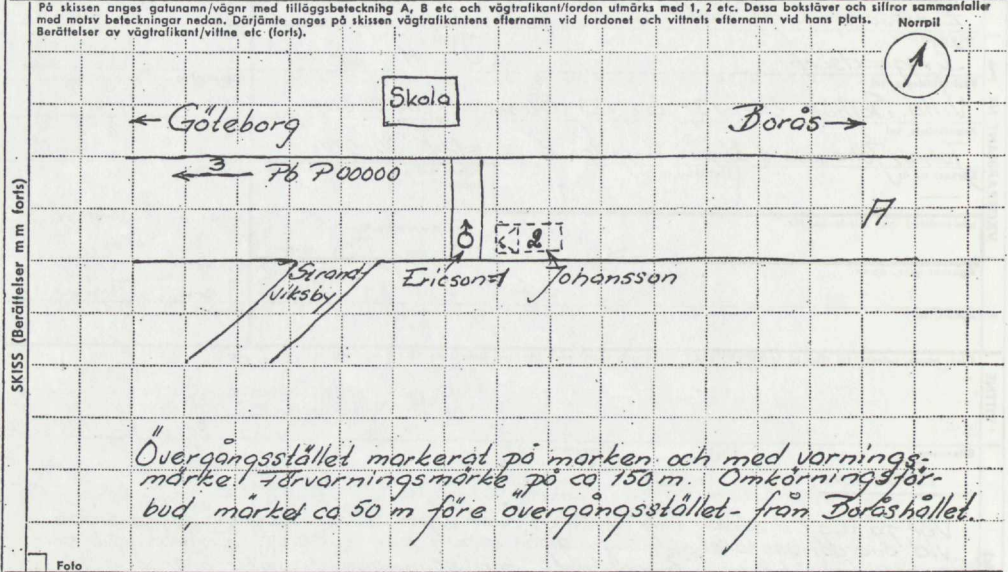 På skissen anges gatunamn/vägnr med tilläggsbeteckning A, B etc och vägtrafikant/fordon utmärks med 1, 2 etc. Dessa bokstäver och siffror sammanfaller
med motsv beteckningar nedan. Därjämte anges på skissen vägtrafikantens efternamn vid fordonet och vittnets efternamn vid hans plats.
Berättelser av vägtrafikant/vittne etc (forts).
Norrpil
1
Skola
← Göteborg
Borås →
3
Pb P 00000
A
2
Strand-
viksby
Ericson=1
Johansson
SKISS (Berättelser m m forts)
Övergångsstället markerat på marken och med varnings-
märke. Förvarningsmärke på ca 150 m. Omkörningsför-
bud, märket ca 50 m före övergångsstället - från Boråshållet.
Foto